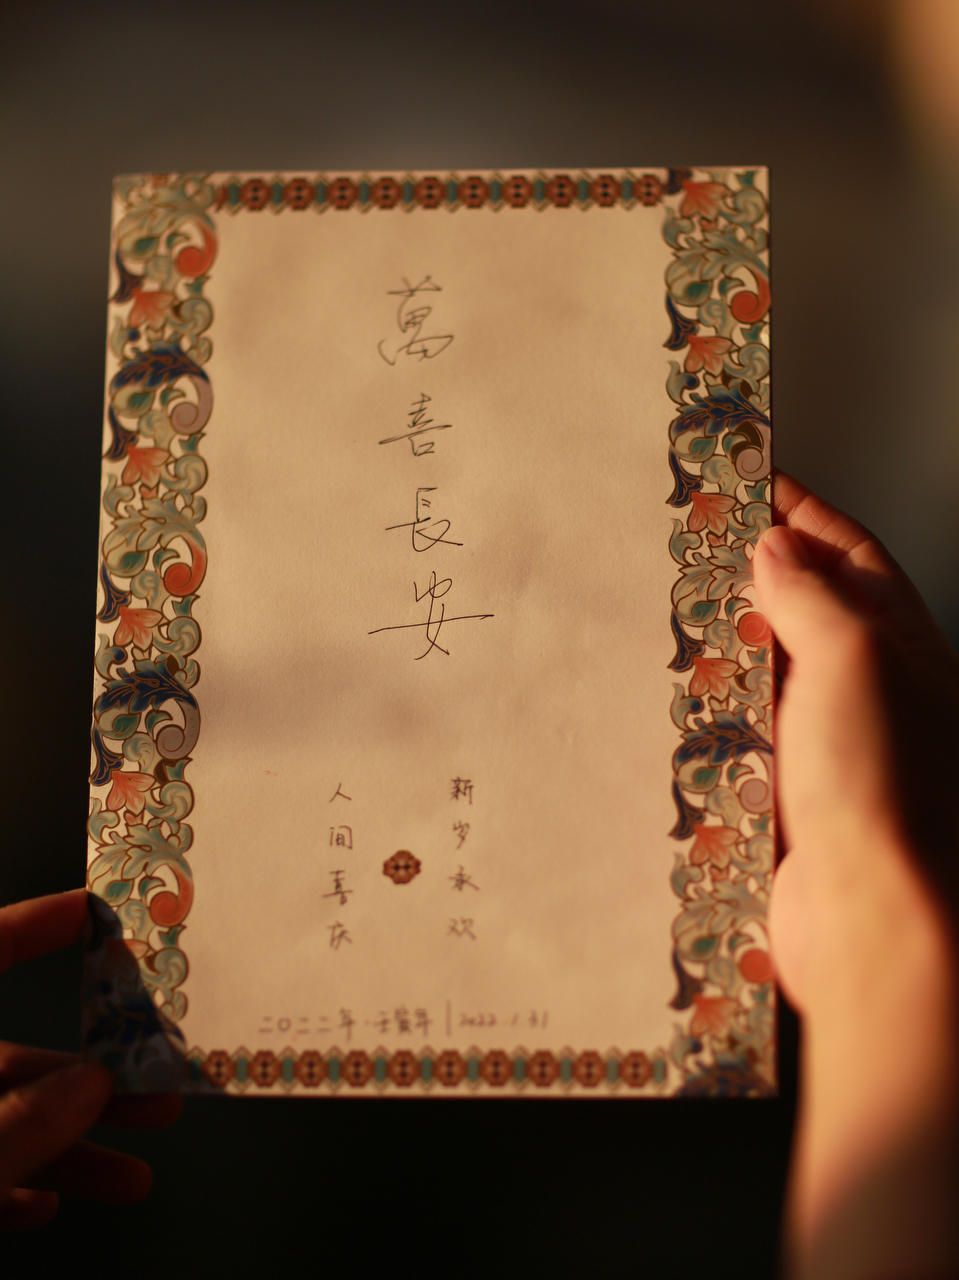 萬喜長安
新岁承欢
人间喜庆
二〇二二年·壬寅年 | 2022.1.31